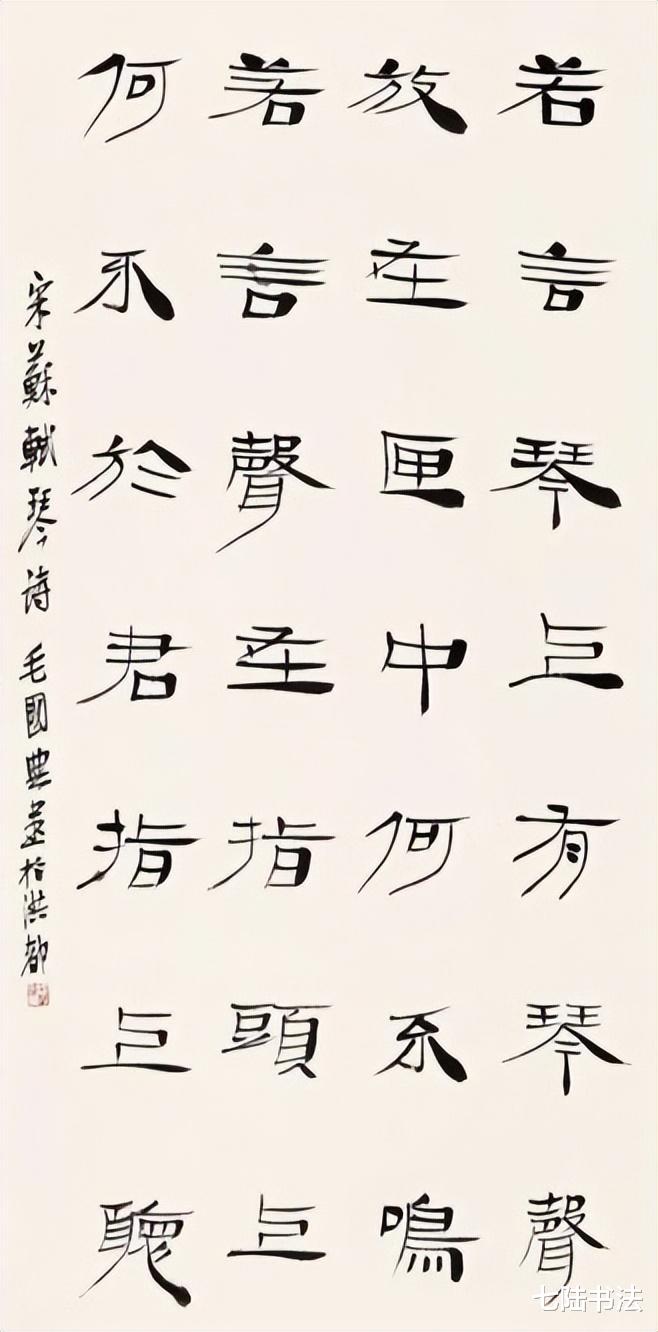 若言琴上有琴聲
放在匣中何不鳴
若言聲在指頭上
何不於君指上聽
宋蘇軾琴詩 毛國典書於洪都
七陆书法